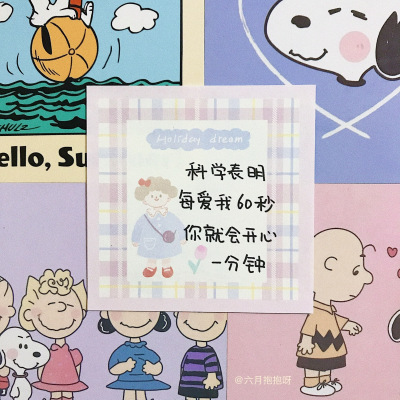 SCHULZ
ello, Su
Holiday dream
科学表明
每爱我60秒
你就会开心
一分钟
@六月抱抱呀